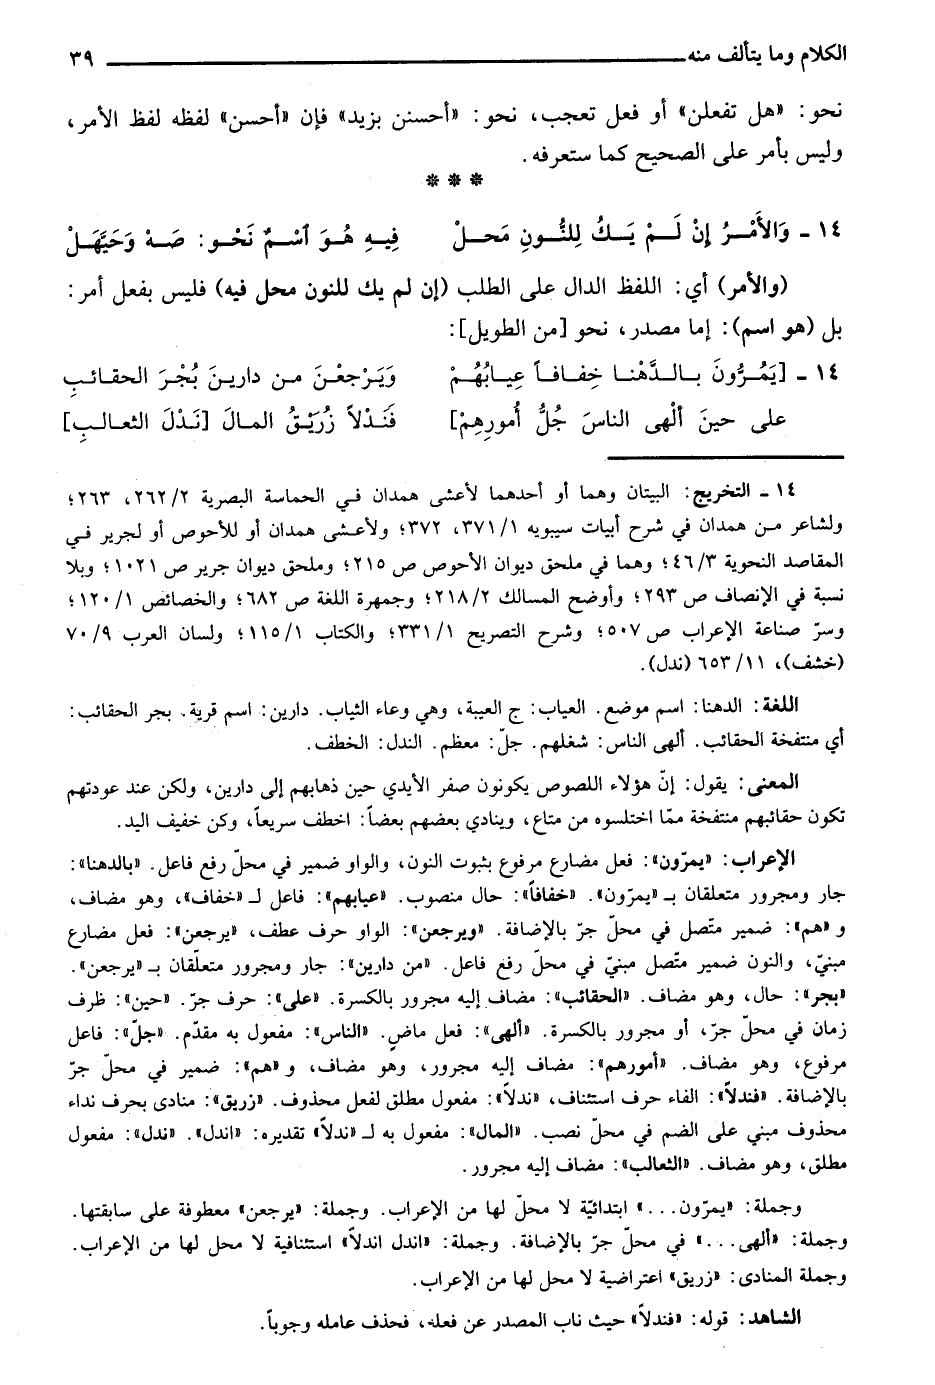 الكلام وما يتألف منه ٣٩
نحو: «هل تفعلن» أو فعل تعجب، نحو: «أحسنن بزيد» فإن «أحسن» لفظه لفظ الأمر،
وليس بأمر على الصحيح كما ستعرفه.
* * *
١٤ ـ وَالأَمْرُ إنْ لَمْ يَكُ لِلنُّونِ مَحلْ فِيهِ هُوَ اَسْمٌ نَحْوُ: صَهْ وَحَيَّهَلْ
(والأمر) أي: اللفظ الدال على الطلب (إن لم يك للنون محل فيه) فليس بفعل أمر:
بل (هو اسم): إما مصدر، نحو [من الطويل]:
١٤ ـ [يَمُرُّونَ بالدَّهْنا خِفافاً عِيابُهُمْ وَيَرْجعْنَ من دارينَ بُجْرَ الحقائبِ
على حينَ ألْهى الناسَ جُلُّ أُمورِهِمْ] فَنَدْلاً زُرَيْقُ المالَ [نَدْلَ الثعالبِ]
١٤ ـ التخريج: البيتان وهما أو أحدهما لأعشى همدان في الحماسة البصرية ٢/ ٢٦٢، ٢٦٣؛
ولشاعر من همدان في شرح أبيات سيبويه ١/ ٣٧١، ٣٧٢؛ ولأعشى همدان أو للأحوص أو لجرير في
المقاصد النحوية ٣/ ٤٦؛ وهما في ملحق ديوان الأحوص ص ٢١٥؛ وملحق ديوان جرير ص ١٠٢١؛ وبلا
نسبة في الإنصاف ص ٢٩٣؛ وأوضح المسالك ٢/ ٢١٨؛ وجمهرة اللغة ص ٦٨٢؛ والخصائص ١/ ١٢٠؛
وسرّ صناعة الإعراب ص ٥٠٧؛ وشرح التصريح ١/ ٣٣١؛ والكتاب ١/ ١١٥؛ ولسان العرب ٩/ ٧٠
(خشف)، ١١/ ٦٥٣ (ندل).
اللغة: الدهنا: اسم موضع. العياب: ج العيبة، وهي وعاء الثياب. دارين: اسم قرية. بجر الحقائب:
أي منتفخة الحقائب. ألهى الناس: شغلهم. جلّ: معظم. الندل: الخطف.
المعنى: يقول: إنّ هؤلاء اللصوص يكونون صفر الأيدي حين ذهابهم إلى دارين، ولكن عند عودتهم
تكون حقائبهم منتفخة ممّا اختلسوه من متاع، وينادي بعضهم بعضاً: اخطف سريعاً، وكن خفيف اليد.
الإعراب: «يمرّون»: فعل مضارع مرفوع بثبوت النون، والواو ضمير في محلّ رفع فاعل. «بالدهنا»:
جار ومجرور متعلقان بـ «يمرّون». «خفافاً»: حال منصوب. «عيابهم»: فاعل لـ «خفاف»، وهو مضاف،
و «هم»: ضمير متّصل في محلّ جرّ بالإضافة. «ويرجعن»: الواو حرف عطف، «يرجعن»: فعل مضارع
مبنيّ، والنون ضمير متّصل مبنيّ في محلّ رفع فاعل. «من دارين»: جار ومجرور متعلّقان بـ «يرجعن».
«بجر»: حال، وهو مضاف. «الحقائب»: مضاف إليه مجرور بالكسرة. «على»: حرف جرّ. «حين»: ظرف
زمان في محلّ جرّ، أو مجرور بالكسرة. «ألهى»: فعل ماضٍ. «الناس»: مفعول به مقدّم. «جلّ»: فاعل
مرفوع، وهو مضاف. «أمورهم»: مضاف إليه مجرور، وهو مضاف، و «هم»: ضمير في محلّ جرّ
بالإضافة. «فندلاً»: الفاء حرف استئناف، «ندلاً»: مفعول مطلق لفعل محذوف. «زريق»: منادى بحرف نداء
محذوف مبني على الضم في محلّ نصب. «المال»: مفعول به لـ «ندلاً» تقديره: «اندل». «ندل»: مفعول
مطلق، وهو مضاف. «الثعالب»: مضاف إليه مجرور.
وجملة: «يمرّون...» ابتدائيّة لا محلّ لها من الإعراب. وجملة: «يرجعن» معطوفة على سابقتها.
وجملة: «ألهى...» في محلّ جرّ بالإضافة. وجملة: «اندل اندلاً» استئنافية لا محل لها من الإعراب.
وجملة المنادى: «زريق» اعتراضية لا محل لها من الإعراب.
الشاهد: قوله: «فندلاً» حيث ناب المصدر عن فعله، فحذف عامله وجوباً.